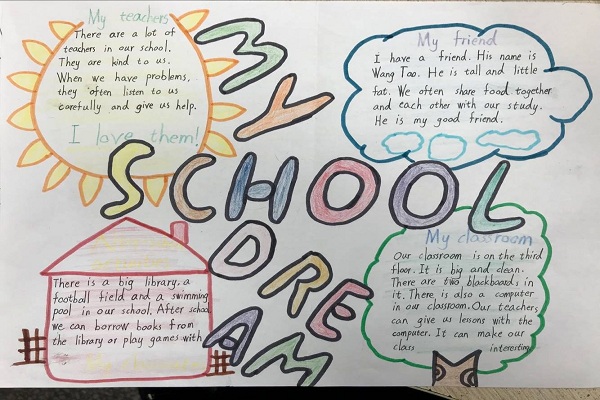 My teachers
There are a lot of
teachers in our school.
They are kind to us.
When we have problems,
they often listen to us
carefully and give us help.
I love them!
MY
SCHOOL
DREAM
My friend
I have a friend. His name is
Wang Tao. He is tall and little
fat. We often share food together
and each other with our study.
He is my good friend.
There is a big library, a
football field and a swimming
pool in our school. After school
we can borrow books from
the library or play games with
My classroom
Our classroom is on the third
floor. It is big and clean.
There are two blackboards in
it. There is also a computer
in our classroom. Our teachers
can give us lessons with the
computer. It can make our
class interesting